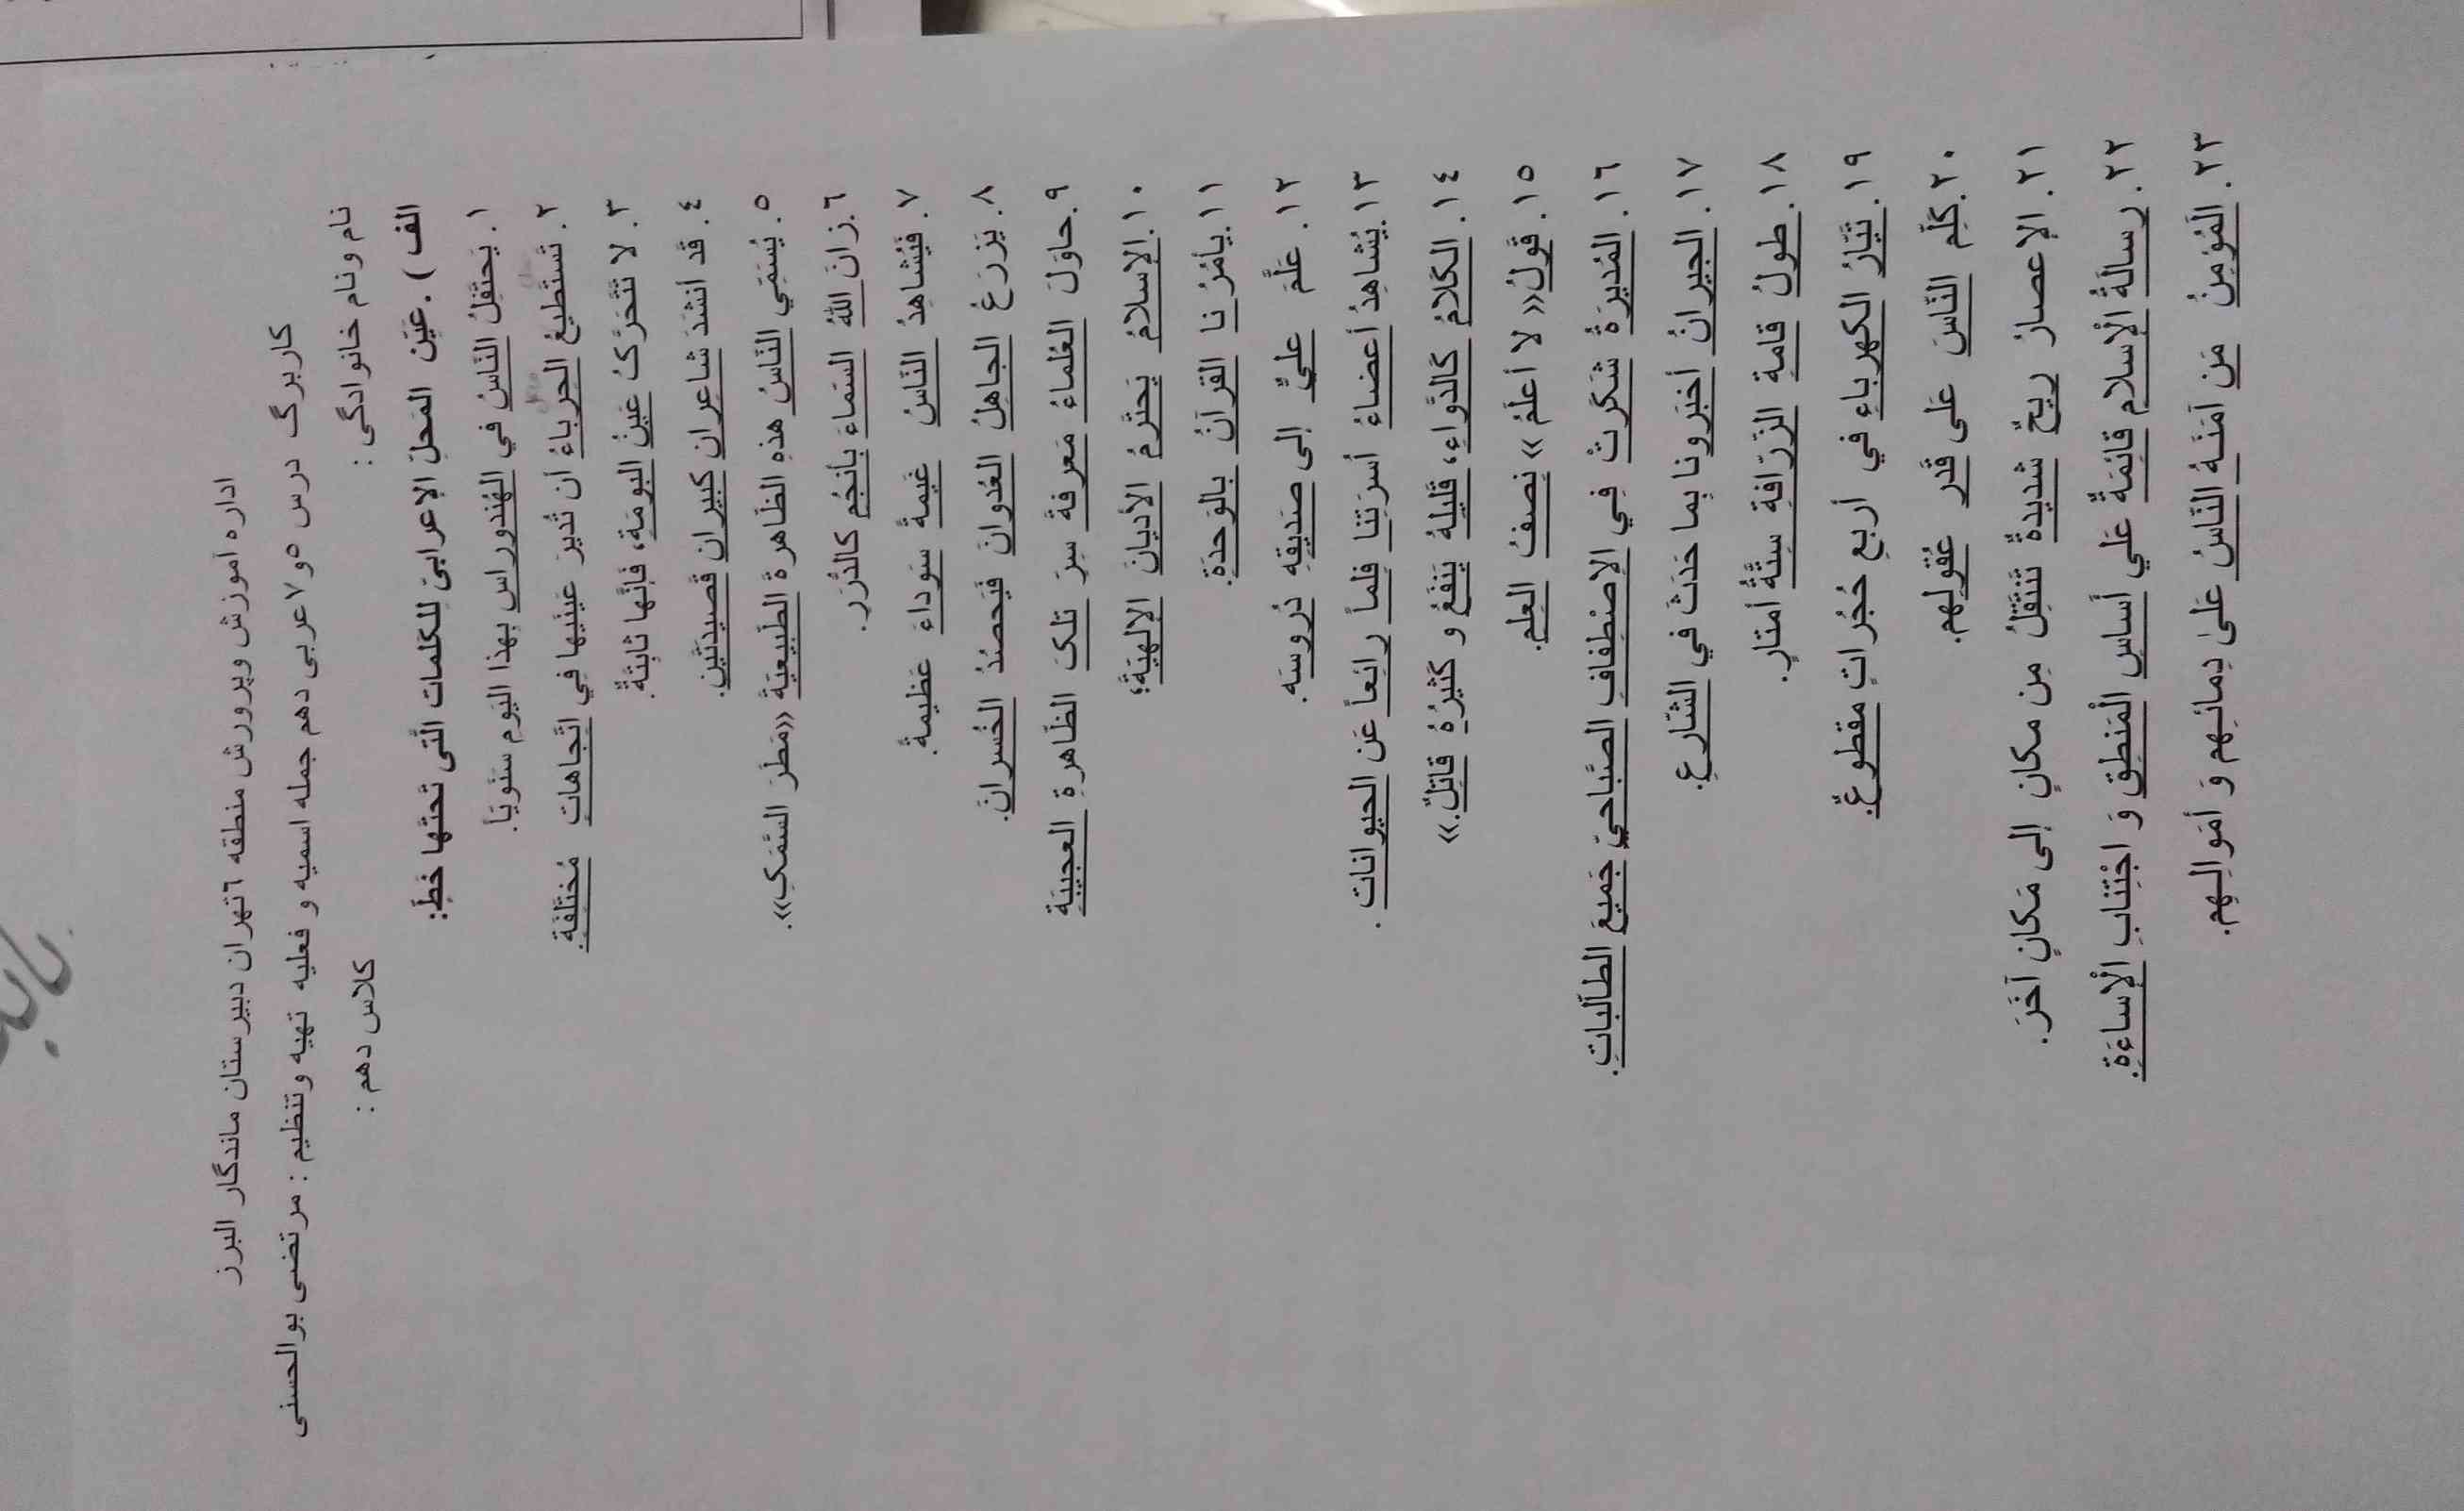 اداره آموزش وپرورش منطقه ٦تهران دبیرستان ماندگار البرز
کاربرگ درس ٥و٧عربی دهم جمله اسمیه و فعلیه تهیه وتنظیم : مرتضی بوالحسنی
نام ونام خانوادگی : کلاس دهم :
الف ) .عَیِّن المَحلِ الإعرابیَ لِلکَلمات الَّتی تَحتَها خَطِّ:
١. یَحتَفِلُ النّاسُ في الهُندوراسِ بِهذا الیَومِ سَنَویَاً.
٢. تَستَطیعُ الحِرباءُ أن تُدیرَ عَینَیها فِي اتِّجاهاتٍ مُختَلِفَةٍ.
٣. لا تَتَحَرَّکُ عَینُ البومَةِ، فَإنَّها ثابِتَةٌ.
٤. قَد أنشَدَ شاعِرانِ کَبیرانِ قَصیدَتَینِ.
٥. یُسَمّي النّاسُ هذِهِ الظّاهرةَ الطَّبیعیَةَ «مَطَرَ السَّمَکِ».
٦.زانَ اللهُ السَماءَ بِأنجُمٍ کالدُّرَرِ.
٧. فَیُشاهِدُ النّاسُ غَیمةً سَوداءَ عَظیمةً.
٨. یَزرَعُ الجاهِلُ العُدوانَ فَیَحصُدُ الخُسرانَ.
٩.حاوَلَ العُلَماءُ مَعرفةَ سِرِّ تلکَ الظّاهرةِ العجیبَةِ
١٠.الإسلامُ یَحتَرِمُ الأدیانَ الإلهیَةَ؛
١١.یأمُرُ نا القرآنُ بالوَحدَةِ.
١٢. عَلَّمَ عليٌّ إلی صَدیقِهِ دُروسَه.
١٣.یُشاهِدُ أعضاءُ أسرَتنا فلماً رائعاً عَن الحیوانات .
١٤. الکَلامُ کَالدَّواءِ، قَلیلهُ یَنفَعُ و کَثیرُهُ قاتِلٌ.»
١٥. قَولُ« لا أعلَمُ » نِصفُ العِلمِ.
١٦. المُدیرَةُ شَکَرَت فِي الإصْطِفافِ الصَّباحيّ جَمیعَ الطالَباتِ.
١٧. الجیرانُ أخبَرونا بِما حَدَثَ في الشّارعِ.
١٨. طولُ قامةِ الزَّرافةِ سِتَّةُ أمتارٍ.
١٩. تَیّارُ الکهرباءِ في أربعِ حُجُراتٍ مقطوعٌ.
٢٠.کَلِّمِ النّاسَ عَلی قَدرِ عُقولِهم.
٢١. الإعصارُ ریحٌ شدیدةٌ تَنتَقِلُ مِن مکانٍ إلی مَکانٍ آخَرَ.
٢٢. رِسالَةُ الْإسلامِ قائمَةٌ عَلي أَساسِ الْمَنطِقِ وَ اجْتِنابِ الْإساءَةِ.
٢٣. الْمُؤمِنُ مَن آمَنَهُ النّاسُ عَلیٰ دِمائِهِم وَ أمَوالِهِم.